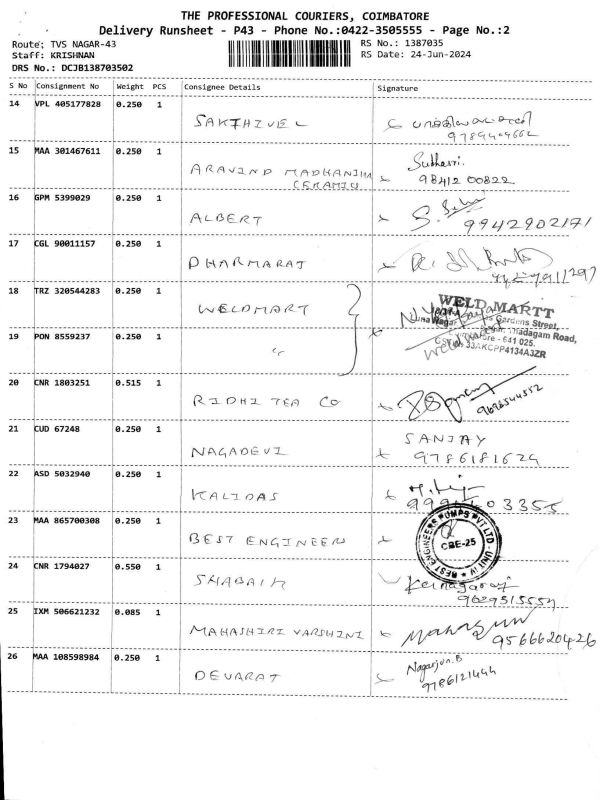 THE PROFESSIONAL COURIERS, COIMBATORE
Delivery Runsheet - P43 - Phone No.:0422-3505555 - Page No.:2
Route: TVS NAGAR-43
RS No.: 1387035
Staff: KRISHNAN
RS Date: 24-Jun-2024
DRS No.: DCJB138703502
S No Consignment No Weight PCS Consignee Details Signature
14 VPL 405177828 0.250 1
SAKTHIVEL
9789409662
15 MAA 301467611 0.250 1
ARAVIND MADHANIMA
CERAMIC
98412 00822
16 GPM 5399029 0.250 1
ALBERT
9942902171
17 CGL 90011157 0.250 1
DHARMARAJ
18 TRZ 320544283 0.250 1
WELDMART
WELD MARTT
Gardens Street,
Thadagam Road,
641 025.
33AKCPP4134A3ZR
weldmart
19 PON 8559237 0.250 1
"
20 CNR 1803251 0.515 1
RIDHI TEA CO
9698544552
21 CUD 67248 0.250 1
NAGADEVI
SANJAY
9786181629
22 ASD 5032940 0.250 1
KALIDAS
03355
23 MAA 865700308 0.250 1
BEST ENGINEER
BEST ENGINEERS PUMPS PVT LTD - UNIT IV
CBE-25
24 CNR 1794027 0.550 1
SHABAIK
9629515554
25 IXM 506621232 0.085 1
MAHASHIRI VARSHINI
9566620426
26 MAA 108598984 0.250 1
DEVARAT
Nagarjun.B
9786121444